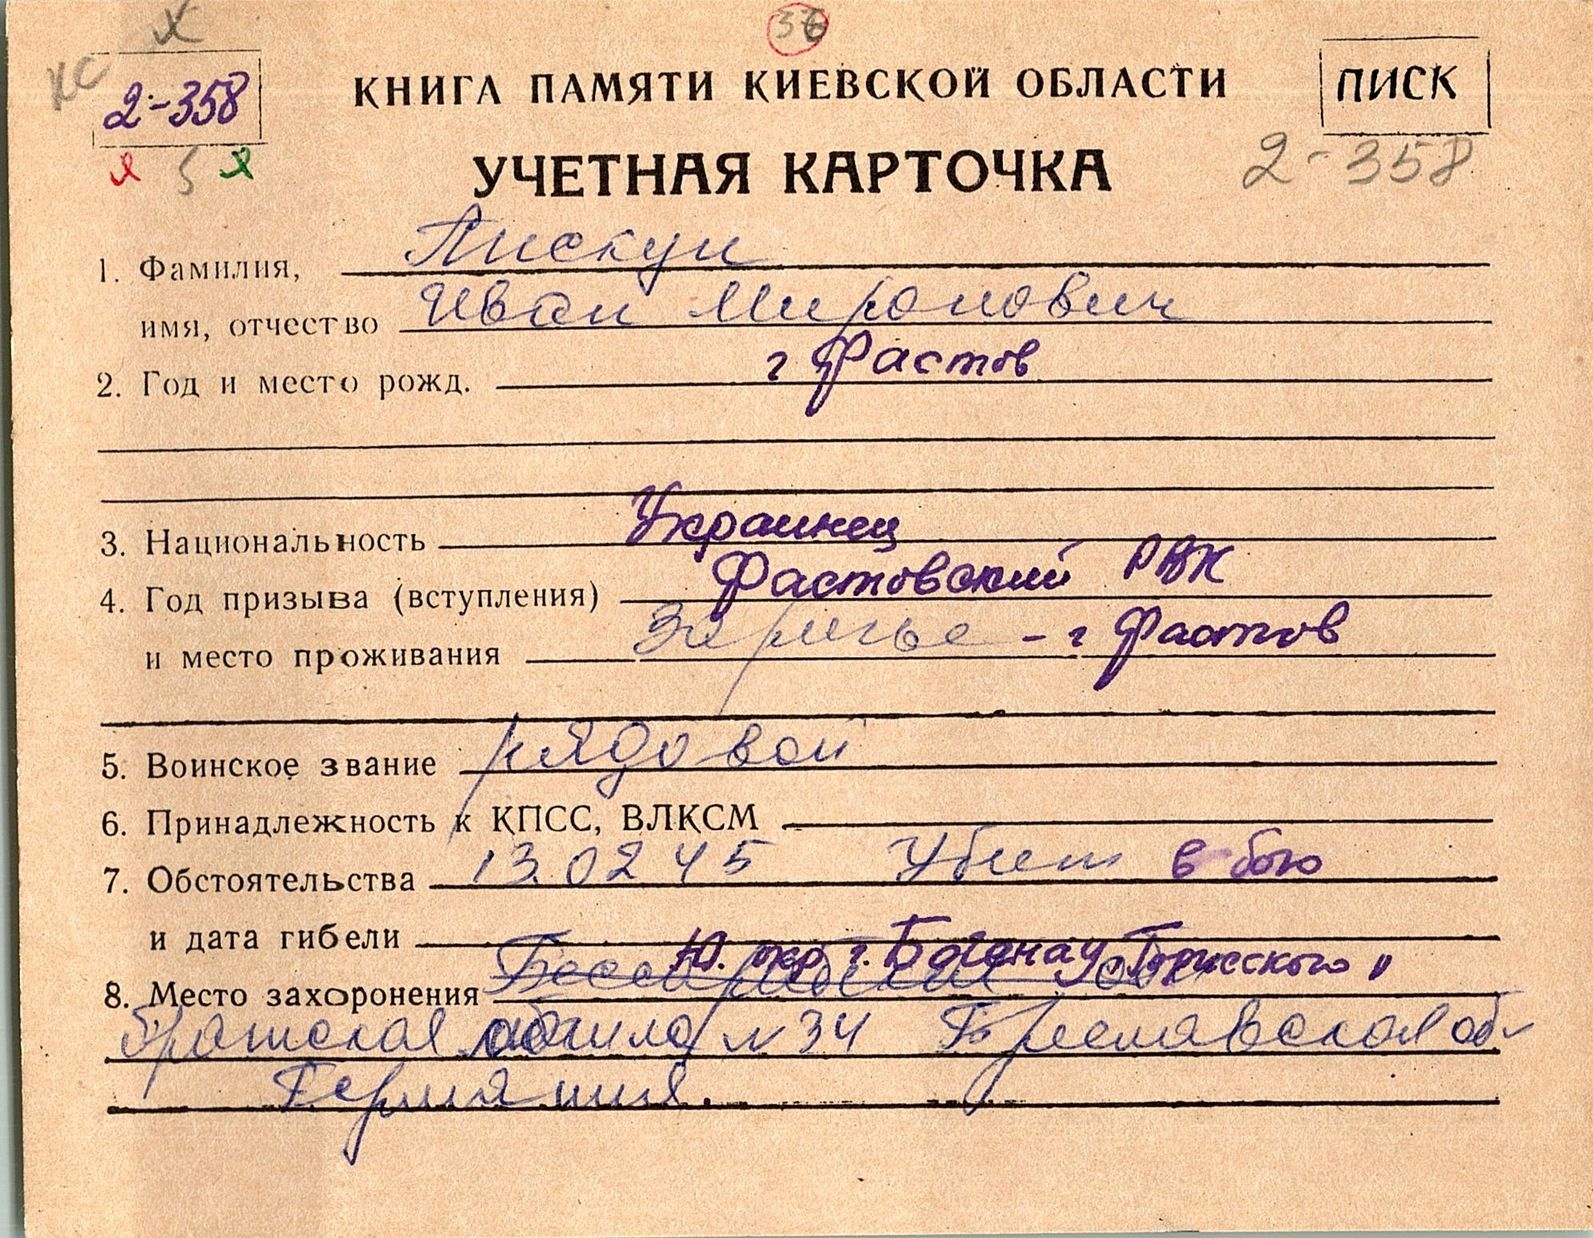 36
2-358
КНИГА ПАМЯТИ КИЕВСКОЙ ОБЛАСТИ
ПИСК
УЧЕТНАЯ КАРТОЧКА
2-358
1. Фамилия, Пискун
имя, отчество Иван Миронович
2. Год и место рожд. г Фастов
3. Национальность Украинец
4. Год призыва (вступления) Фастовский РВК
и место проживания Заречье - г Фастов
5. Воинское звание рядовой
6. Принадлежность к КПСС, ВЛКСМ
7. Обстоятельства 13.02 45 Убит в бою
и дата гибели
Ю. окр г.
8. Место захоронения
Братская могила N 34 Бреславская обл
Германия.